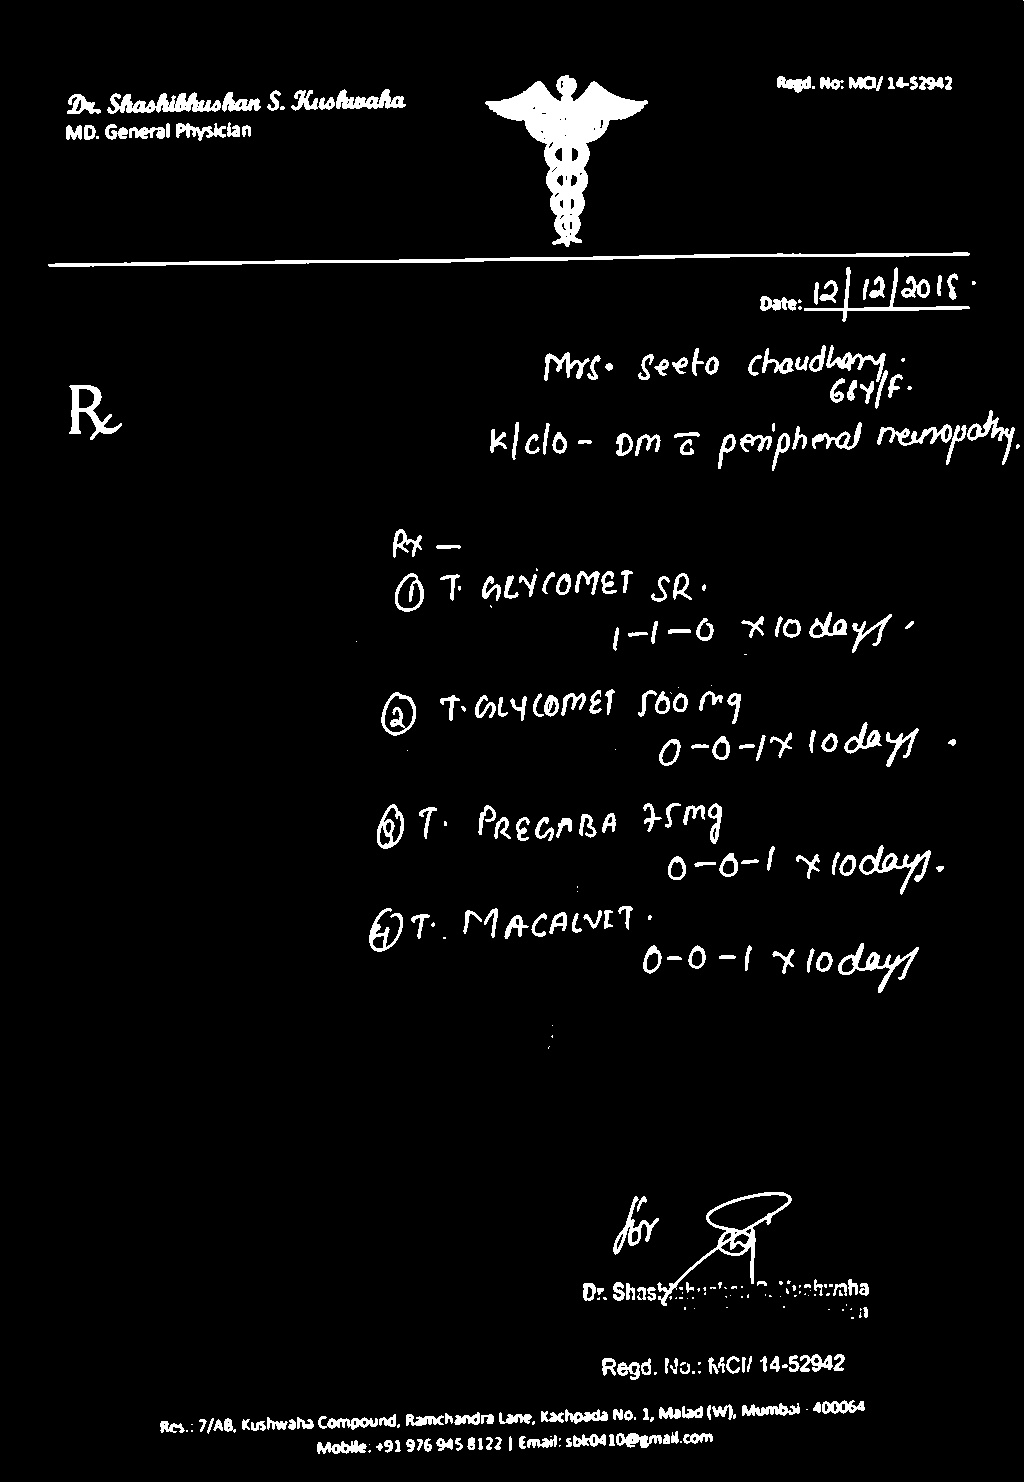 Dr. Shashibhushan S. Kushwaha
MD. General Physician
Regd. No: MCI/ 14-52942
Date: 12/12/2018.
Rx
Mrs. Seeto Chaudhary.
68Y/F.
K/c/o - DM c̄ peripheral neuropathy.
Rx —
① T. GLYCOMET SR.
1-1-0 x 10 days.
② T. GLYCOMET 500 mg
0-0-1 x 10 days.
③ T. PREGABA 75mg
0-0-1 x 10 days.
④ T. MACALVIT.
0-0-1 x 10 days
for
Dr. Shashibhushan S. Kushwaha
Regd. No.: MCI/ 14-52942
Res.: 7/AB, Kushwaha Compound, Ramchandra Lane, Kachpada No. 1, Malad (W), Mumbai - 400064
Mobile: +91 976 945 8122 | Email: sbk0410@gmail.com